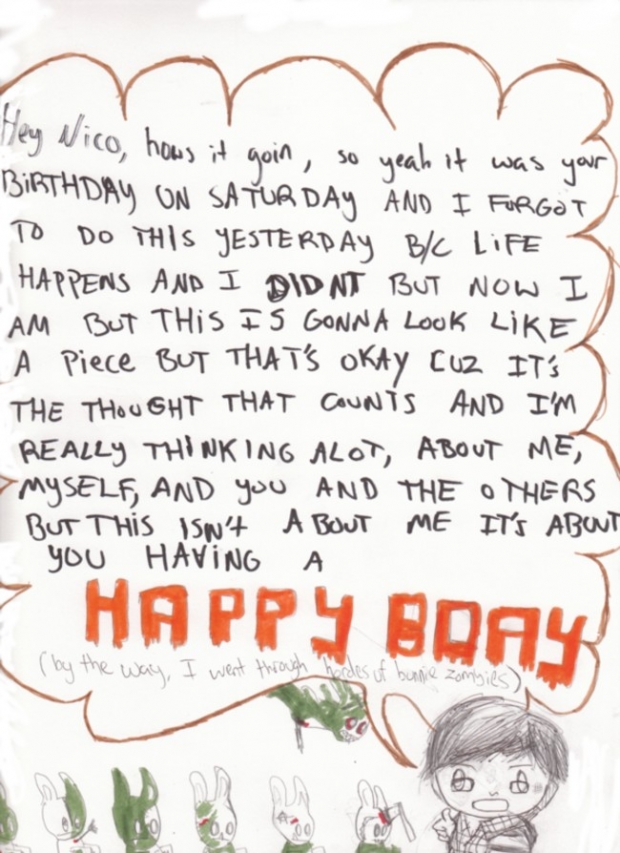 Hey Nico, hows it goin, so yeah it was your
BIRTHDAY ON SATURDAY AND I FORGOT
TO DO THIS YESTERDAY B/C LIFE
HAPPENS AND I DIDNT BUT NOW I
AM BUT THIS IS GONNA LOOK LIKE
A PIECE BUT THAT'S OKAY CUZ IT'S
THE THOUGHT THAT COUNTS AND I'M
REALLY THINKING ALOT, ABOUT ME,
MYSELF, AND YOU AND THE OTHERS
BUT THIS ISN't ABOUT ME IT'S ABOUT
YOU HAVING A
HAPPY BDAY
(by the way, I went through hordes of bunnie zombies)